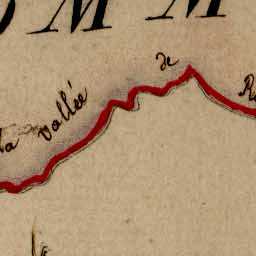 OMM
la vallée de R